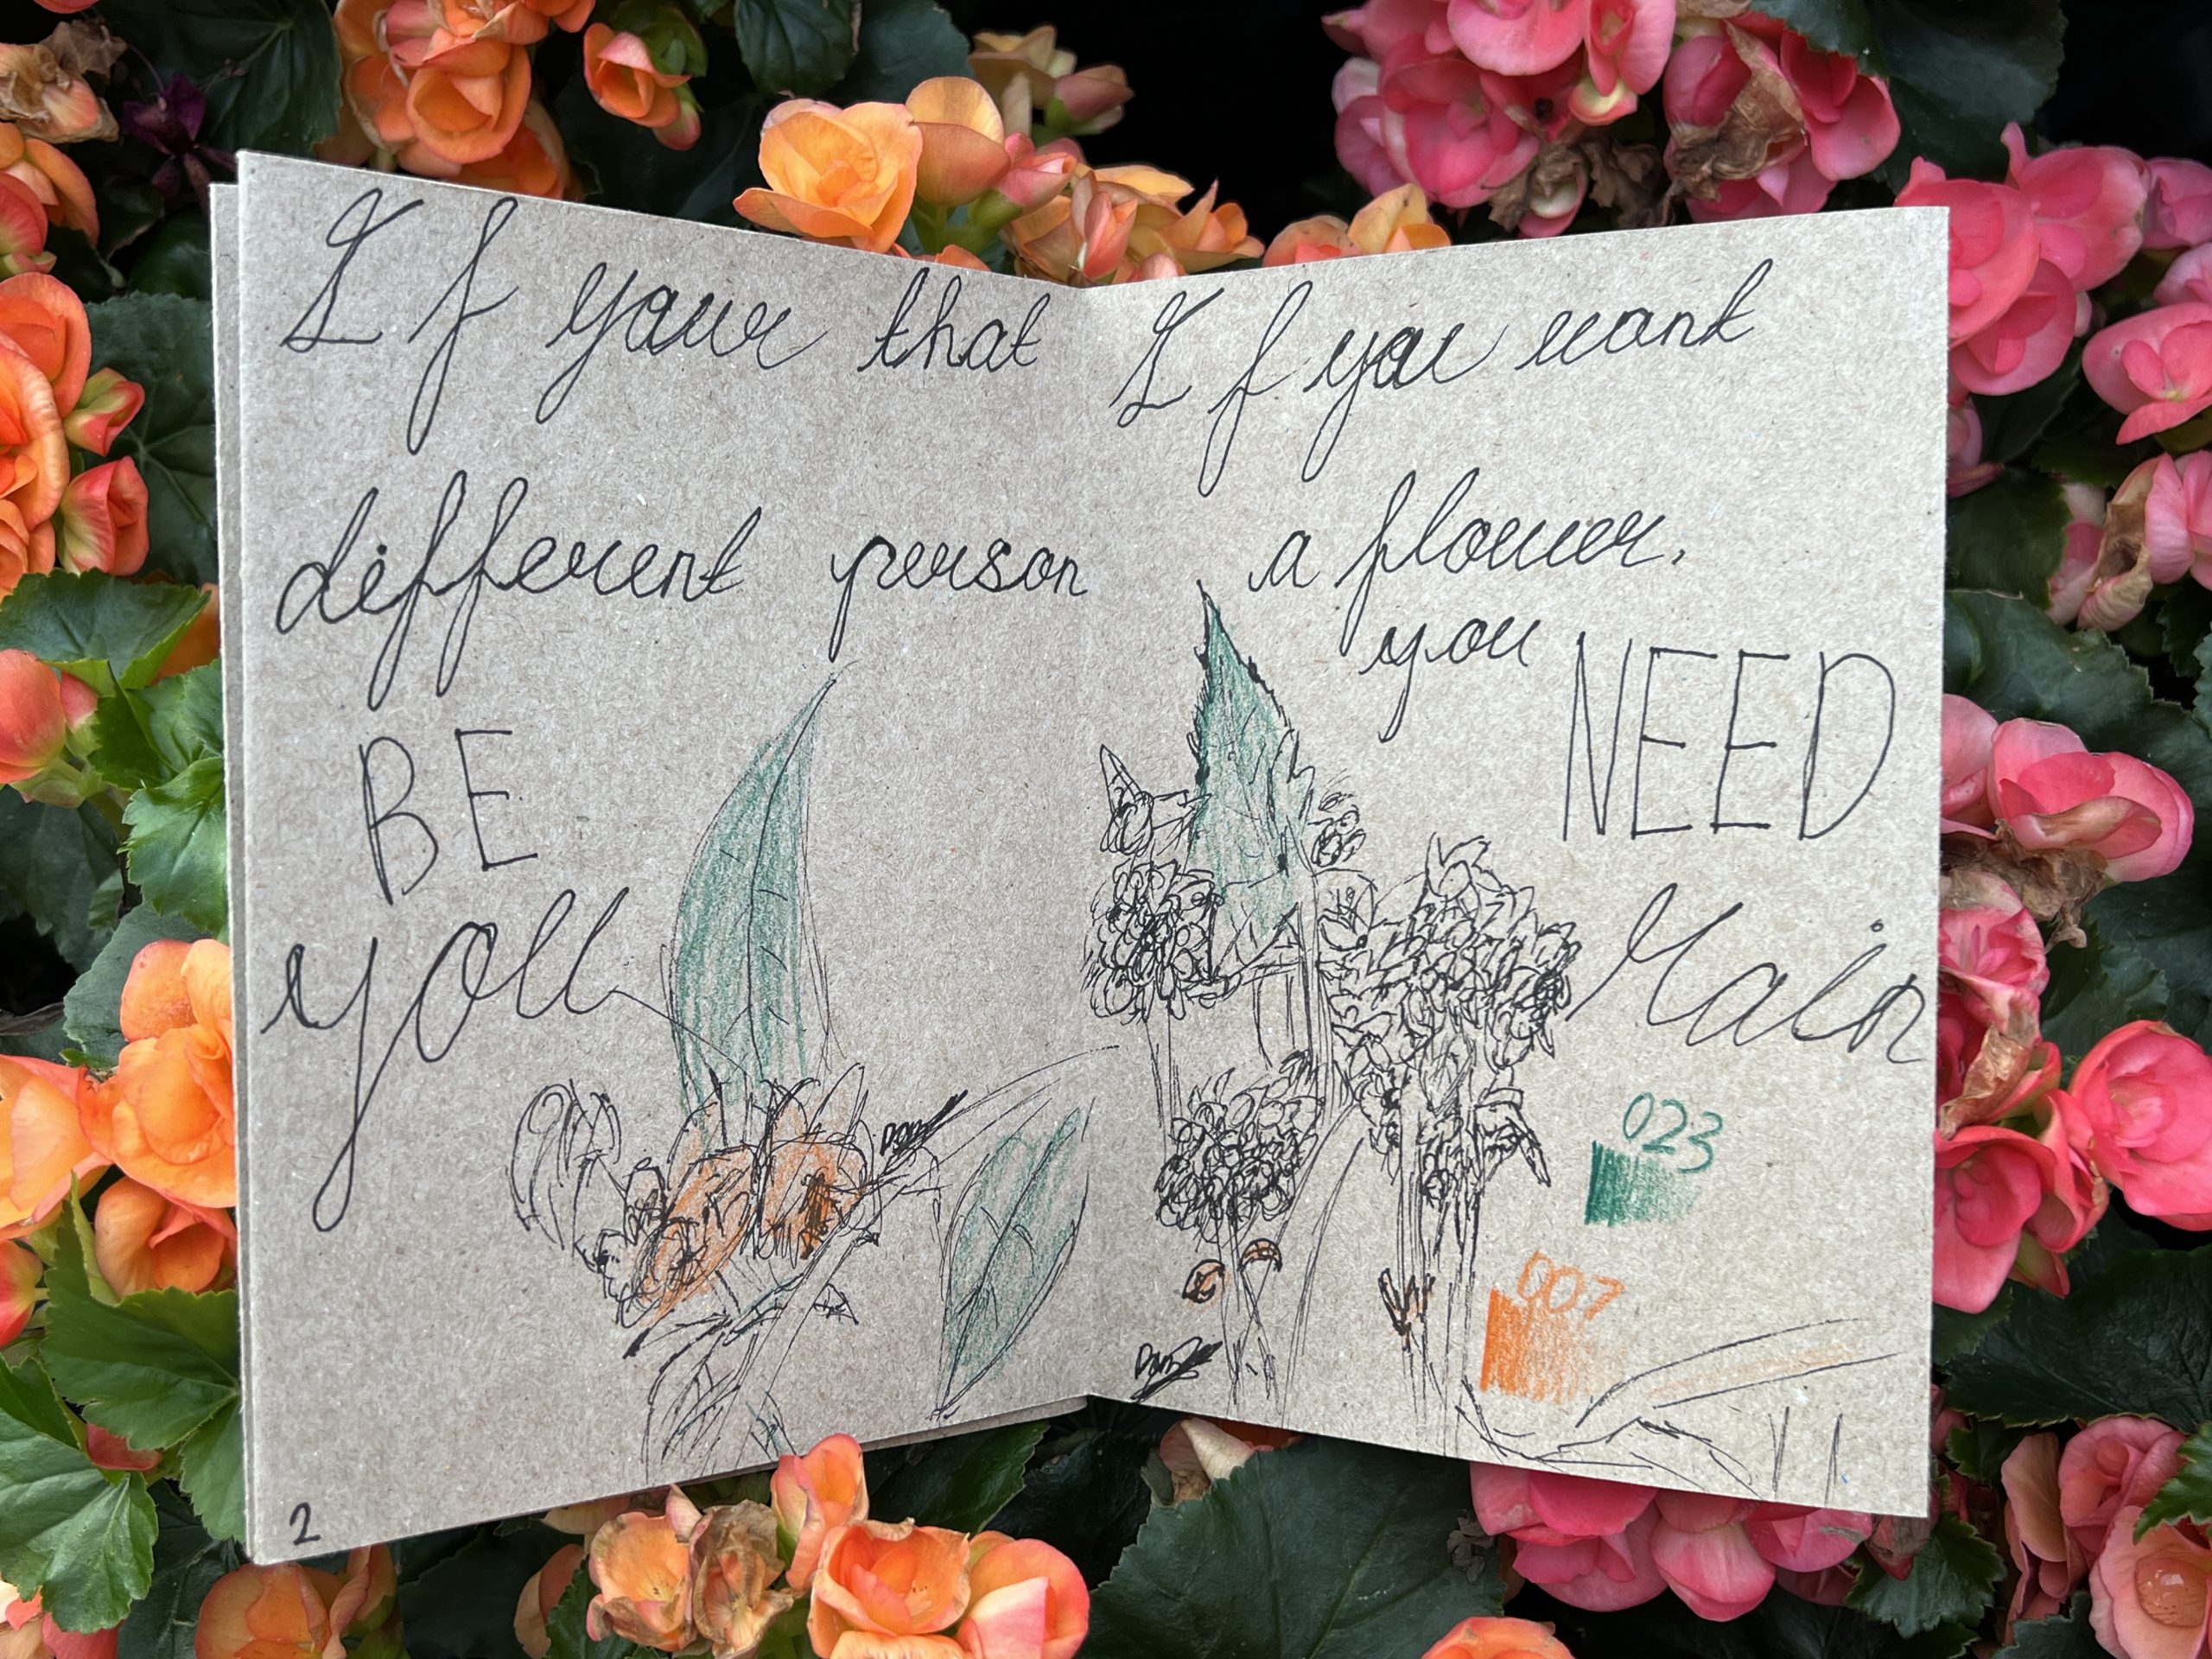 If your that
different person
BE
you
2
If you want
a flower.
you NEED
rain
023
007